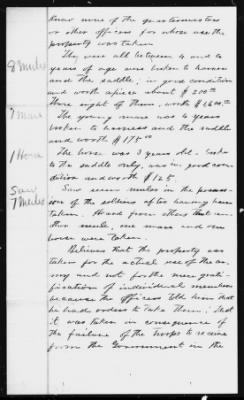 know none of the quartermasters
or other officers for whose use the
property was taken
They were all between 4 and 10
years of age were broken to harness
and the saddle, in good condition
8 Mules
and worth apiece about $200.00
There eight of them, worth $1600.00
The young mare was 4 years
1 Mare
broken to harness and the saddle
and worth $175.00
The horse was 3 years old. broke
1 Horse
to the saddle only, was in good con-
dition and worth $125.
Saw
7 Mules
Saw seven mules in the posses-
sion of the soldiers after having been
taken. Heard from others that an-
other mule, one mare and one
horse were taken.
Believes that the property was
taken for the actual use of the ar-
my and not for the mere grati-
fication of individual members
because the officers told him that
he had orders to take them; that
it was taken in consequence of
the failure of the troops to receive
from the Government in the